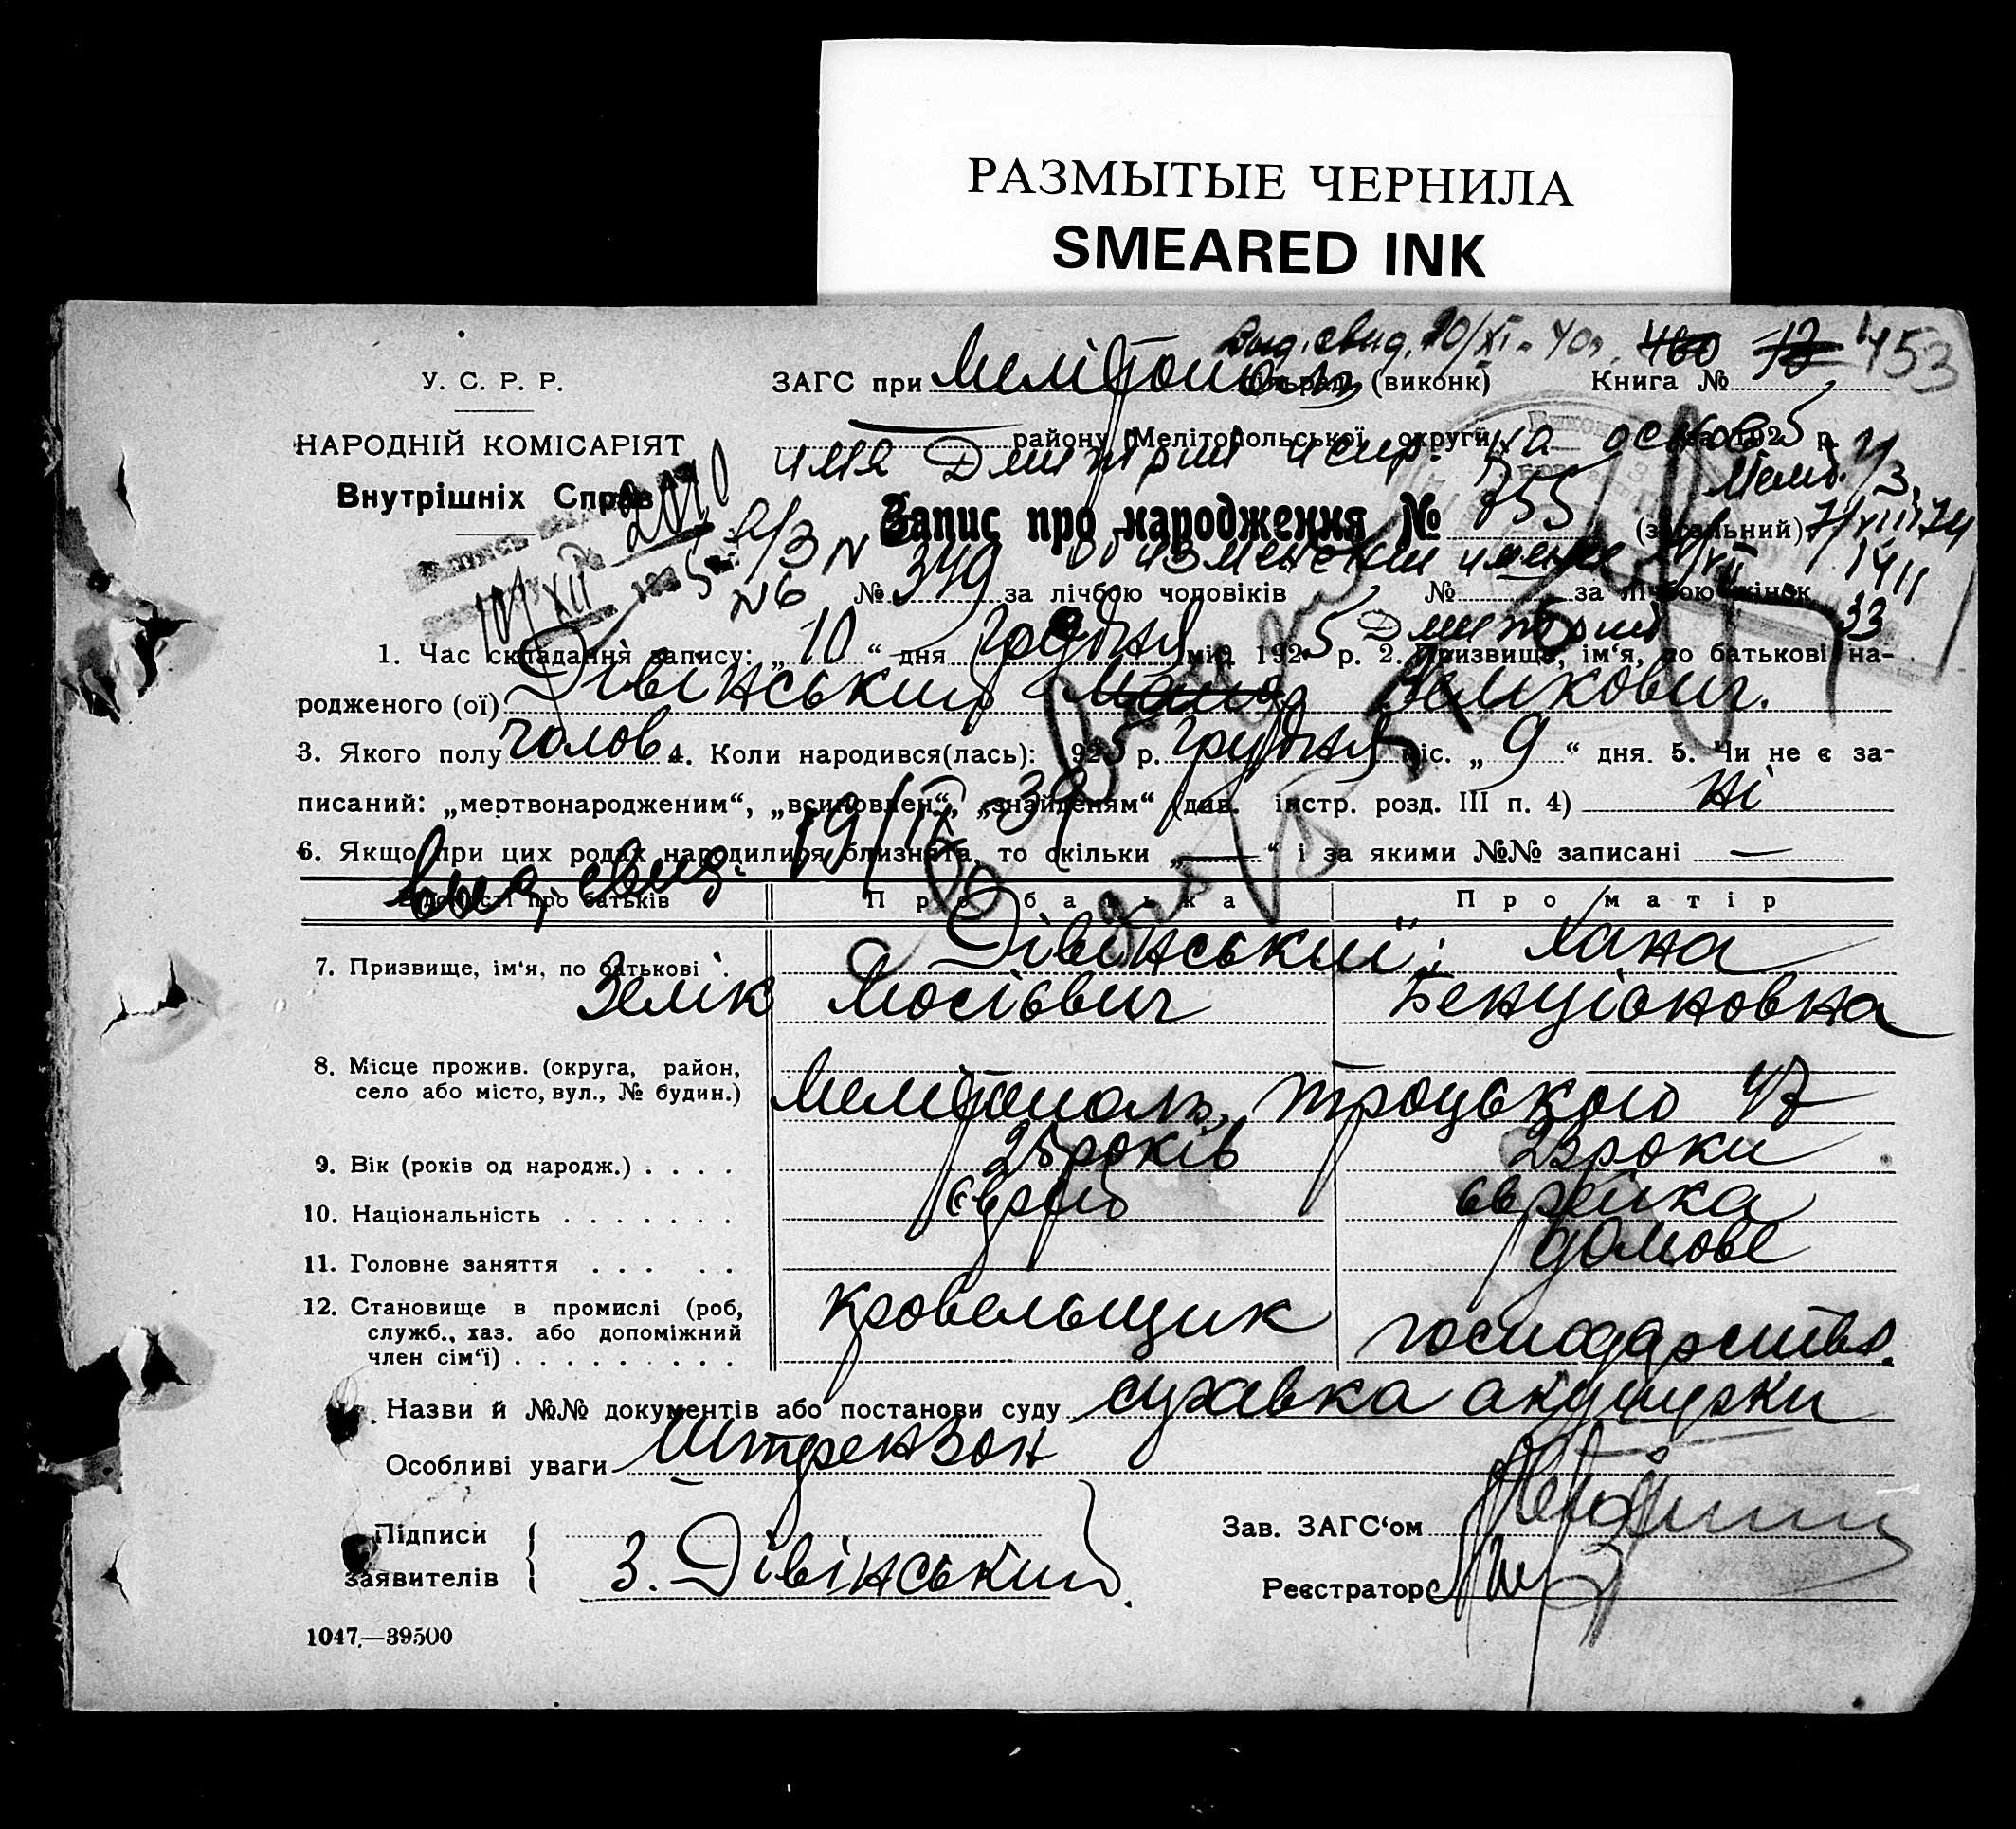 РАЗМЫТЫЕ ЧЕРНИЛА
SMEARED INK
Выд. свид. 20/XI - 40 г. 460 12 453
У. С. Р. Р.
ЗАГС при Мелітополь (виконк) Книга №
НАРОДНІЙ КОМІСАРІЯТ
району Мелітопольської округи за 1925 р.
имя Дмитрий испр. на основ
Внутрішніх Справ
2010
Запис про народження № 755 (загальний)
а/з N об изменении имени
N6 № 349 за лічбою чоловіків № за лічбою жінок
Дмитрий
1. Час складання запису: „ 10 “ дня грудня міс. 1925 р. 2. Призвище, ім‘я, по батькові на-
родженого (ої) Дівінський Зелікович.
3. Якого полу чолов 4. Коли народився(лась): 925 р. грудня міс. „ 9 “ дня. 5. Чи не є за-
писаний: „мертвонародженим“, „всиновлен“, „знайденям“ (див. інстр. розд. III п. 4) ні
6. Якщо при цих родах народилися близнята, то скільки „ — “ і за якими №№ записані —
Выд. свид. 19/IX - 39
Відомості про батьків Про батька Про матір
7. Призвище, ім‘я, по батькові . Дівінський і Хана
Зелік Мосієвич Бенціоновна
8. Місце прожив. (округа, район,
село або місто, вул., № будин.) Мелітополь, Троцького 47
9. Вік (років од народж.) . . . . 25 років 23 роки
10. Національність . . . . . . . Єврей єврейка
11. Головне заняття . . . . . домове
12. Становище в промислі (роб, кровельщик господарство.
служб., хаз. або допоміжний
член сім‘ї) . . . . . . . . .
Назви й №№ документів або постанови суду справка акушерки
Особливі уваги Штрензон
Підписи
заявителів З. Дівінський.
Зав. ЗАГС‘ом
Реєстратор
1047.—39500